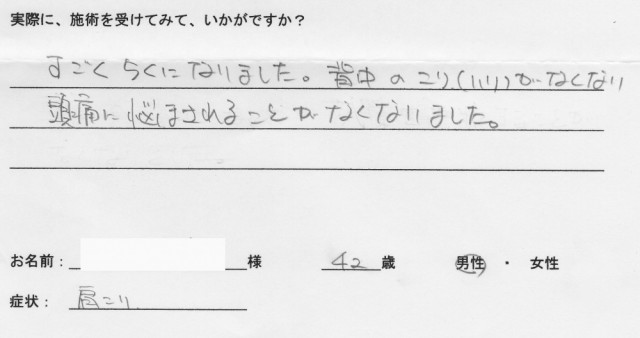 実際に、施術を受けてみて、いかがですか？
すごくらくになりました。背中のこり(いり)がなくなり
頭痛に悩まされることがなくなりました。
お名前： 様 42歳 男性 ・ 女性
症状： 肩こり